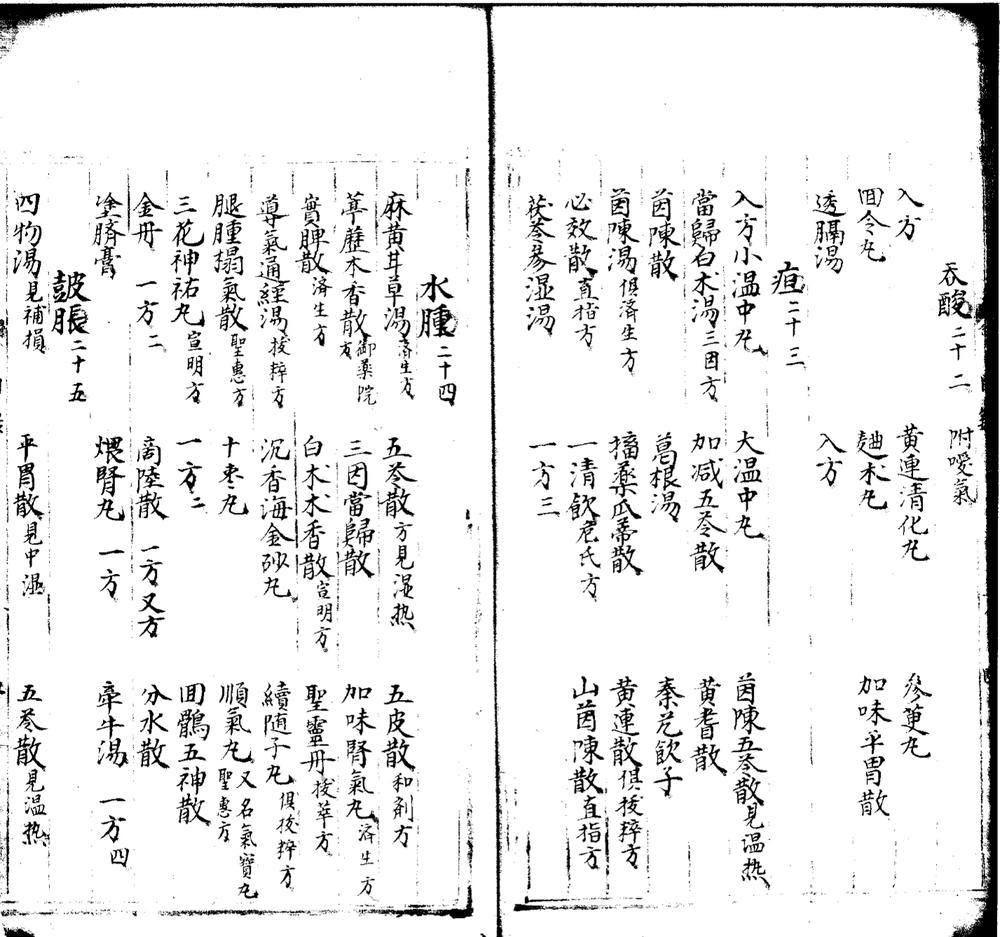 吞酸二十二 附噯氣
入方 黃連清化丸 參萸丸
囬令丸 麯朮丸 加味平胃散
透膈湯 入方
疸二十三
入方小温中丸 大温中丸 茵陳五苓散見温热
當歸白朮湯三因方 加减五苓散 黄耆散
茵陳散 葛根湯 秦艽飲子
茵陳湯俱済生方 搐藥瓜蒂散 黄連散俱拔粹方
必效散直指方 一清飲危氏方 山茵陳散直指方
茯苓滲湿湯 一方三
水腫二十四
麻黄甘草湯済生方 五苓散方見湿热 五皮散和剤方
葶藶木香散御藥院方 三因當歸散 加味腎氣丸済生方
實脾散済生方 白朮木香散宣明方 聖靈丹拔萃方
導氣通經湯拔粹方 沉香海金砂丸 續随子丸俱拔粹方
腿腫搨氣散聖惠方 十枣丸 順氣丸又名氣寶丸聖惠方
三花神祐丸宣明方 一方二 囬鶻五神散
金丹 一方二 商陸散 一方又方 分水散
塗臍膏 煨腎丸 一方 牽牛湯 一方四
皷脹二十五
四物湯見補損 平胃散見中湿 五苓散見温热